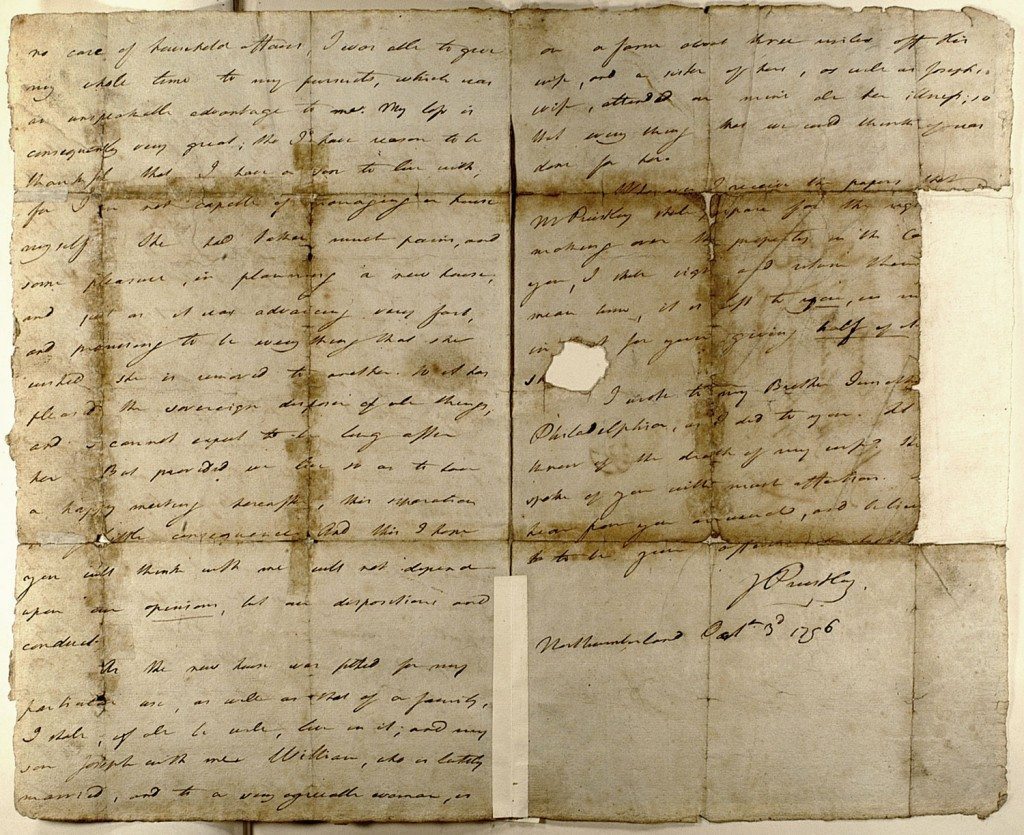 no care of household affairs, I was able to give
my whole time to my pursuits, which was
an unspeakable advantage to me. My loss is
consequently very great; tho' I have reason to be
thankful that I have a son to live with,
for I am not capable of managing a house
myself. She had taken much pains, and
some pleasure, in planning a new house,
and just as it was advancing very fast,
and promising to be every thing that she
wished, she is removed to another. So it has
pleased the sovereign disposer of all things,
and I cannot expect to be long after
her. But provided we live so as to have
a happy meeting hereafter, this separation
is of little consequence. And this I hope
you will think with me will not depend
upon our opinions, but our dispositions and
conduct.
As the new house was fitted for my
particular use, as well as that of a family,
I shall, if all be well, live in it; and my
son Joseph with me. William, who is lately
married, and to a very agreeable woman, is
on a farm about three miles off. His
wife, and a sister of hers, as well as Joseph's
wife, attended on mine all her illness; so
that every thing that we could think of was
done for her.
When I receive the papers that
Mr Priestley shall prepare for the
making over the property in the
you, I shall sign and return them
mean time, it is left to you,
in for your giving half of it
I wrote to my Brother Timothy
Philadelphia, as I did to you.
know of the death of my wife. She
spoke of you with much affection.
hear from you as usual, and believe
to be your
J Priestley.
Northumberland Octr 3d 1796